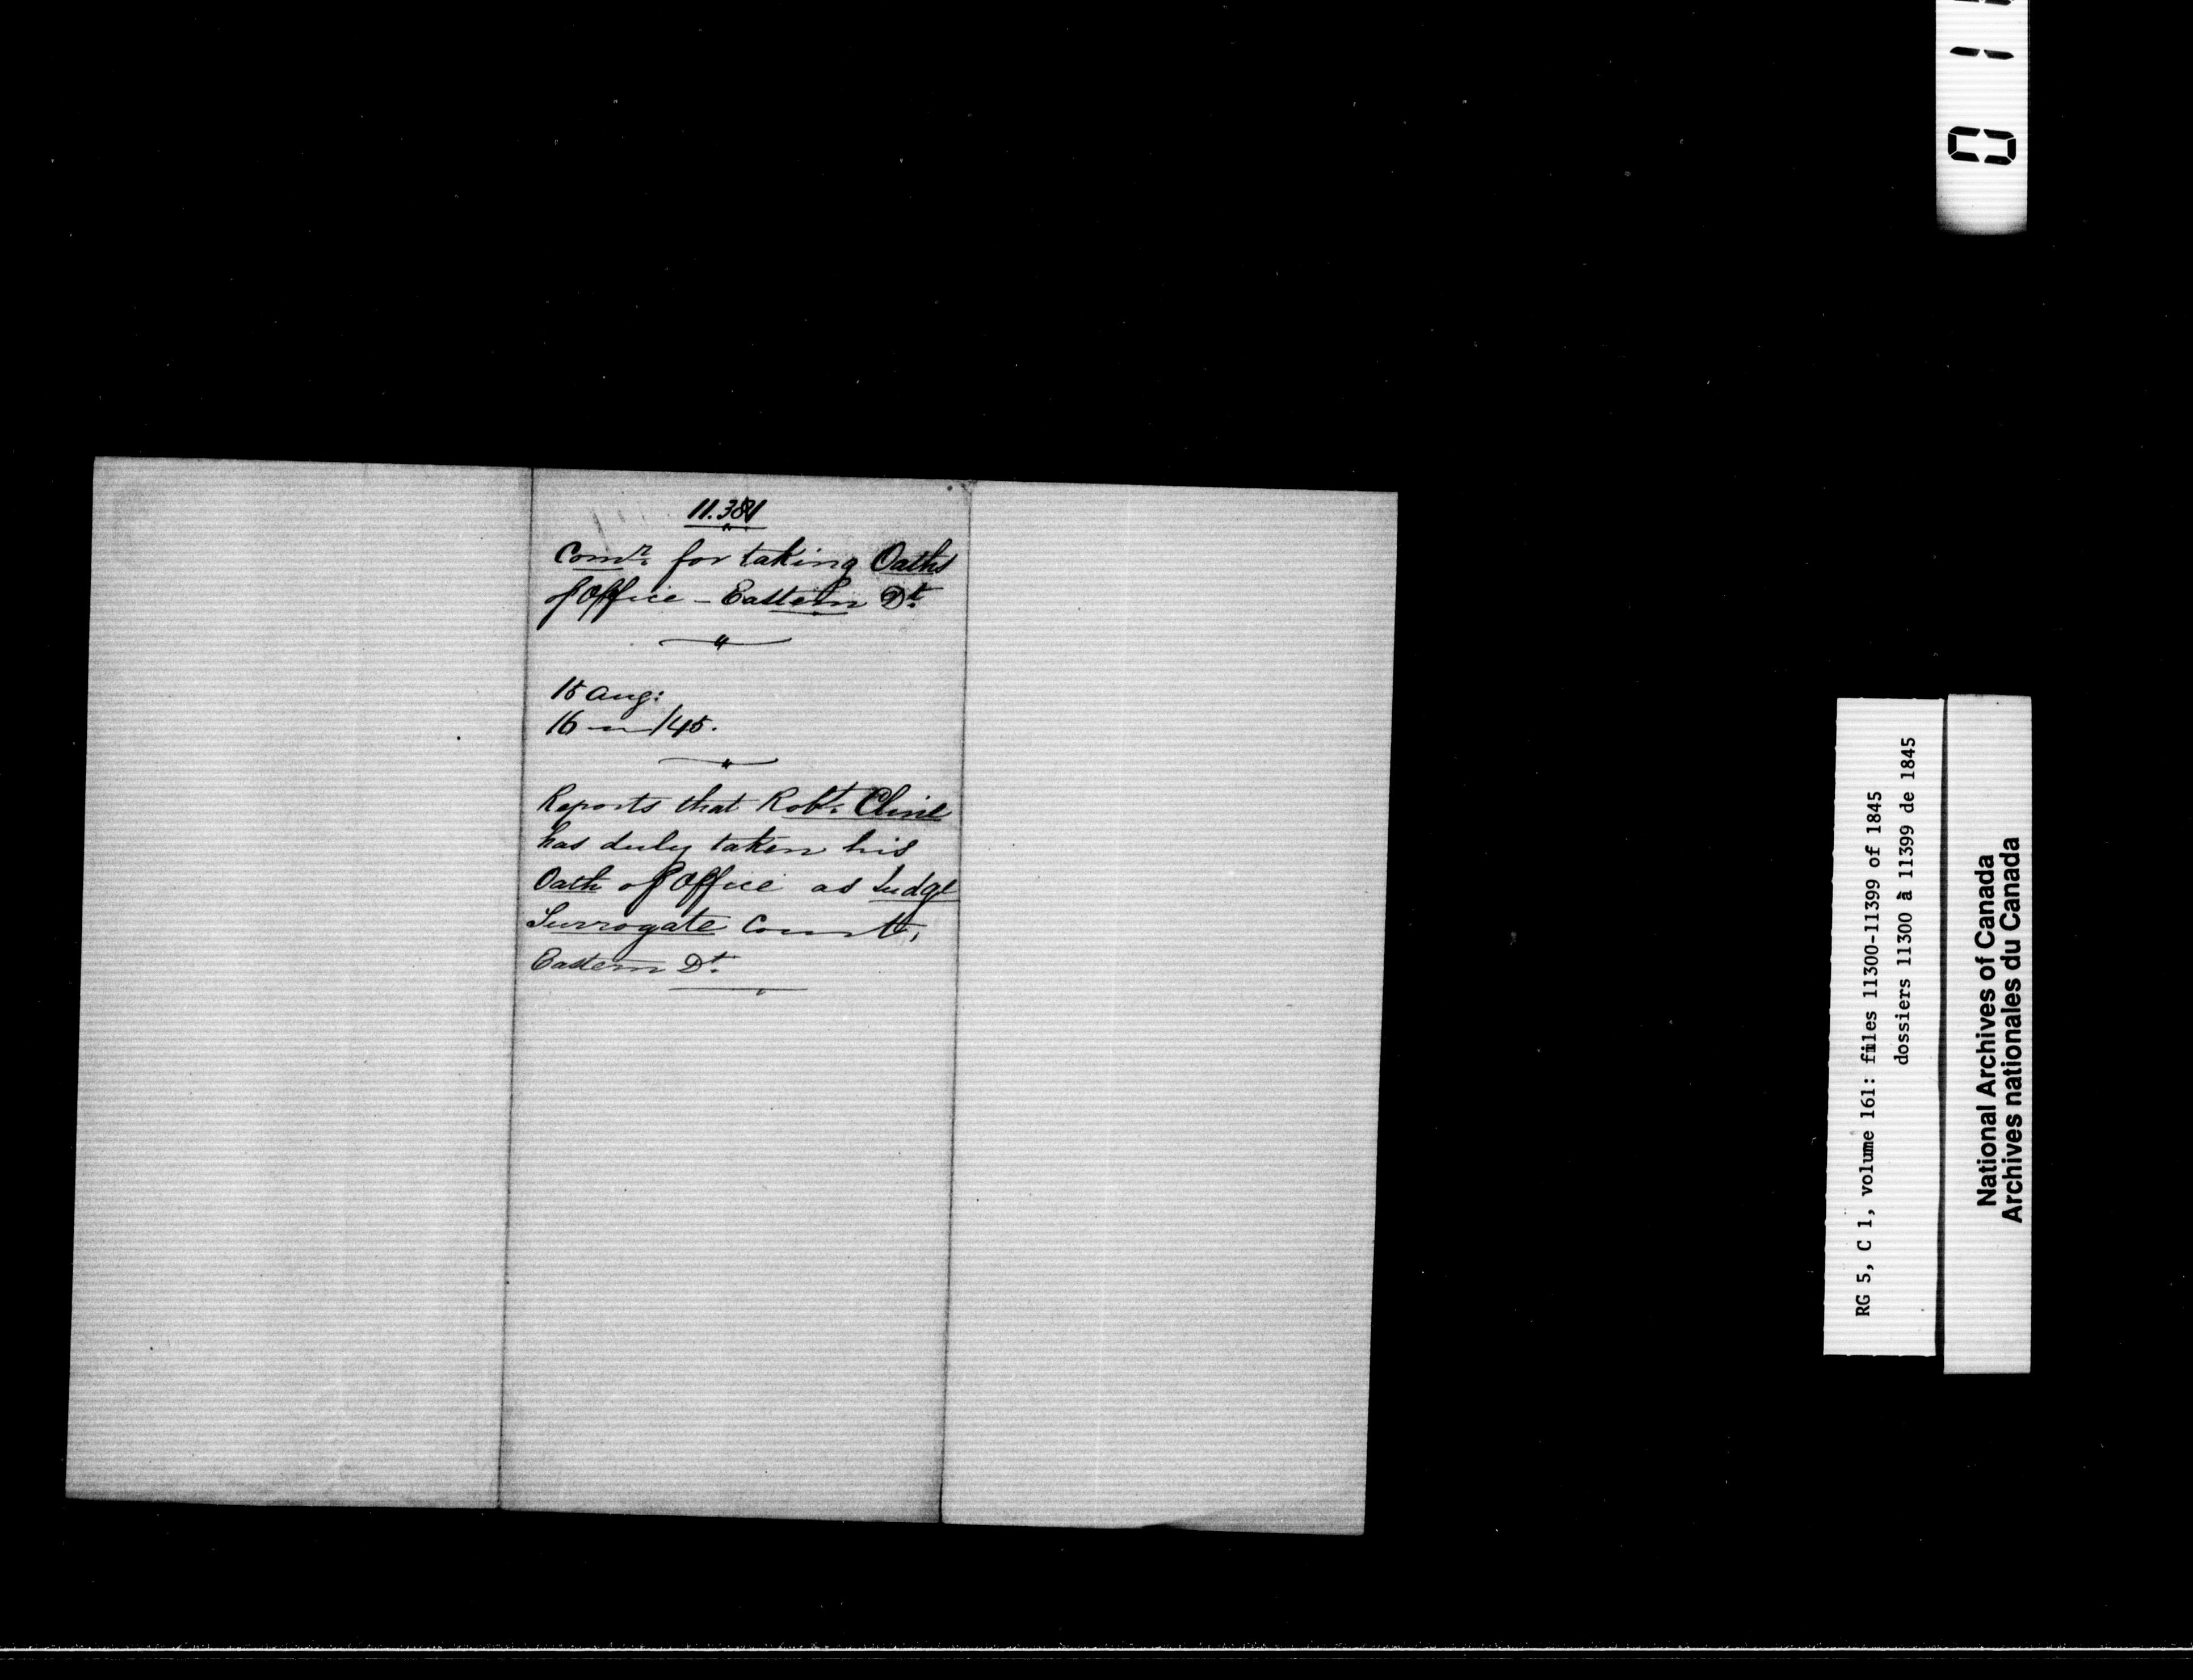 11.381
Comr. for taking Oaths
of Office - Eastern Dt.
15 Aug:
16 — /45.
Reports that Robt. Cline
has duly taken his
Oath of Office as Judge
Surrogate Court,
Eastern Dt.
RG 5, C 1, volume 161: files 11300-11399 of 1845
dossiers 11300 à 11399 de 1845
National Archives of Canada
Archives nationales du Canada